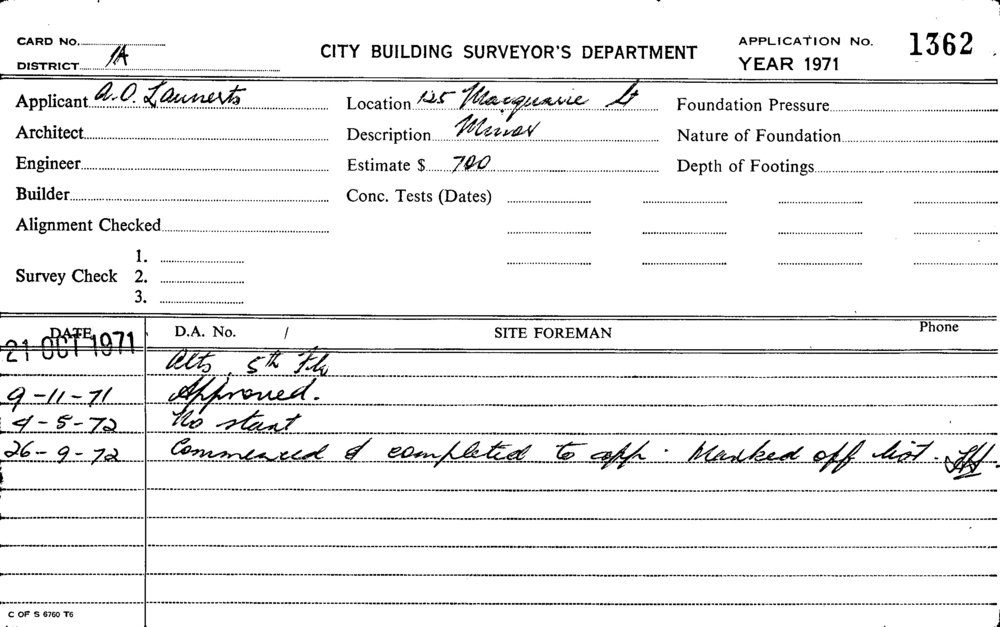 CARD No.
DISTRICT 1A
CITY BUILDING SURVEYOR'S DEPARTMENT
APPLICATION No. 1362
YEAR 1971
Applicant A.O. Location 125 Macquarie St Foundation Pressure
Architect Description Minor Nature of Foundation
Engineer Estimate $ 700 Depth of Footings
Builder Conc. Tests (Dates)
Alignment Checked
1.
Survey Check 2.
3.
DATE D.A. No. / SITE FOREMAN Phone
21 OCT 1971
Alts, 5th Flr
9-11-71 Approved.
4-5-72 No start
26-9-72 Commenced & completed to app. Marked off list.
C OF S 6760 T6